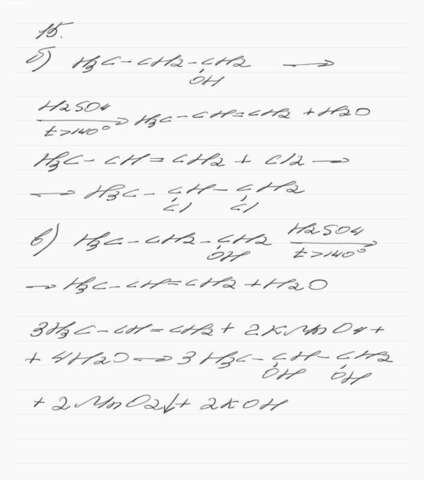 15.
б) H3C - CH2 - CH2 →
OH
H2SO4
t>140° → H3C - CH=CH2 + H2O
H3C - CH = CH2 + Cl2 →
→ H3C - CH - CH2
Cl Cl
в) H3C - CH2 - CH2 H2SO4
OH t>140° →
→ H3C - CH = CH2 + H2O
3H3C - CH = CH2 + 2KMnO4 +
+ 4H2O → 3H3C - CH - CH2
OH OH
+ 2MnO2↓ + 2KOH